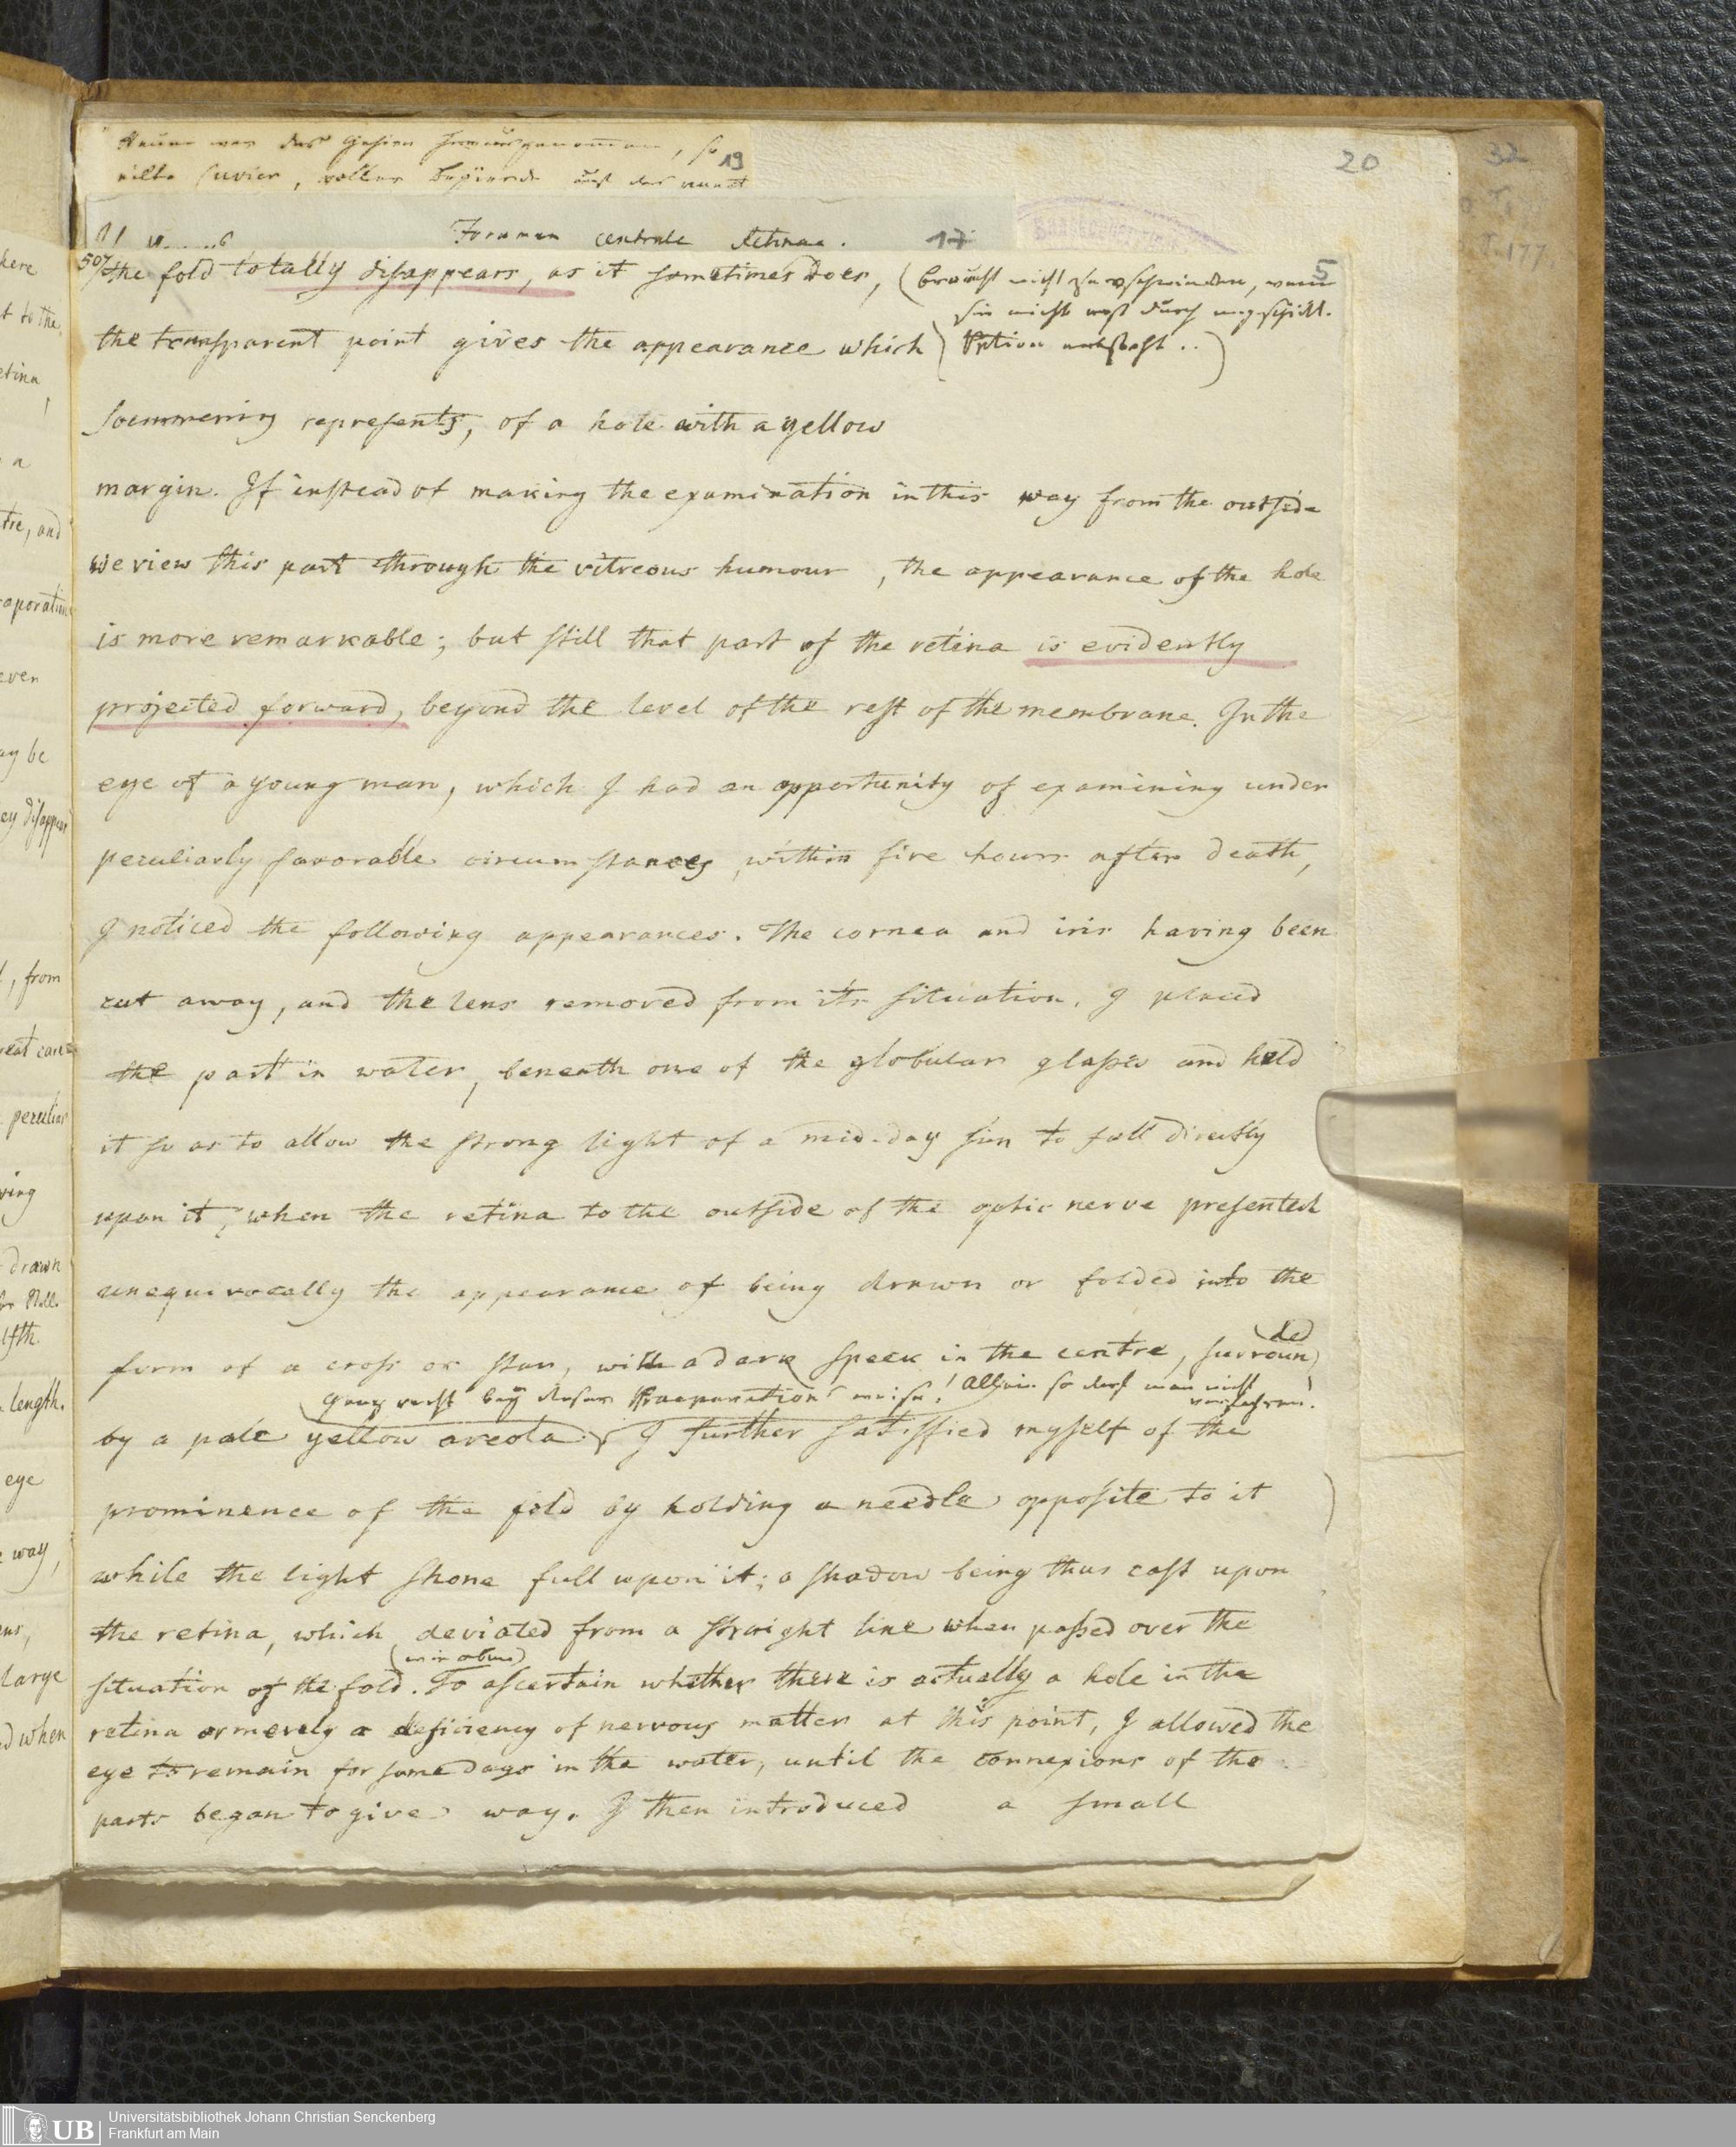 war das Gehirn herausgenommen, so
eilte Cuvier, voller Begierde auf das
19
20
32
Foramen centrale Retinae. 17
177
507
5
the fold totally disappears, as it sometimes does, (braucht nicht zu verschwinden, wenn
sie nicht erst durch ungeschickt.
the transparent point gives the appearance which Section entsteht ..)
Soemmering represents, of a hole with a yellow
margin. If instead of making the examination in this way from the outside
we view this part through the vitreous humour, the appearance of the hole
is more remarkable; but still that part of the retina is evidently
projected forward, beyond the level of the rest of the membrane. In the
eye of a young man, which I had an opportunity of examining under
peculiarly favorable circumstances, within five hours after death,
I noticed the following appearances. The cornea and iris having been
cut away, and the lens removed from its situation, I placed
the part in water, beneath one of the globular glasses and held
it so as to allow the strong light of a mid-day sun to fall directly
upon it, when the retina to the outside of the optic nerve presented
unequivocally the appearance of being drawn or folded into the
form of a cross or star, with a dark speck in the centre, surrounded
(ganz recht bey dieser Praeparations weise! Allein so darf man nicht verfahren!
by a pale yellow areola. I further satisfied myself of the
prominence of the fold by holding a needle opposite to it
while the light shone full upon it; a shadow being thus cast upon
the retina, which deviated from a straight line when passed over the
(wie oben)
situation of the fold. To ascertain whether there is actually a hole in the
retina or merely a deficiency of nervous matter at this point, I allowed the
eye to remain for some days in the water, until the connexions of the
parts began to give way. I then introduced a small
here
t to the
etina
a
tre, and
aporation
even
ay be
ey disappear
, from
reat care
peculiar
ving
drawn
length.
eye
way,
large
d when
UB
Universitätsbibliothek Johann Christian Senckenberg
Frankfurt am Main